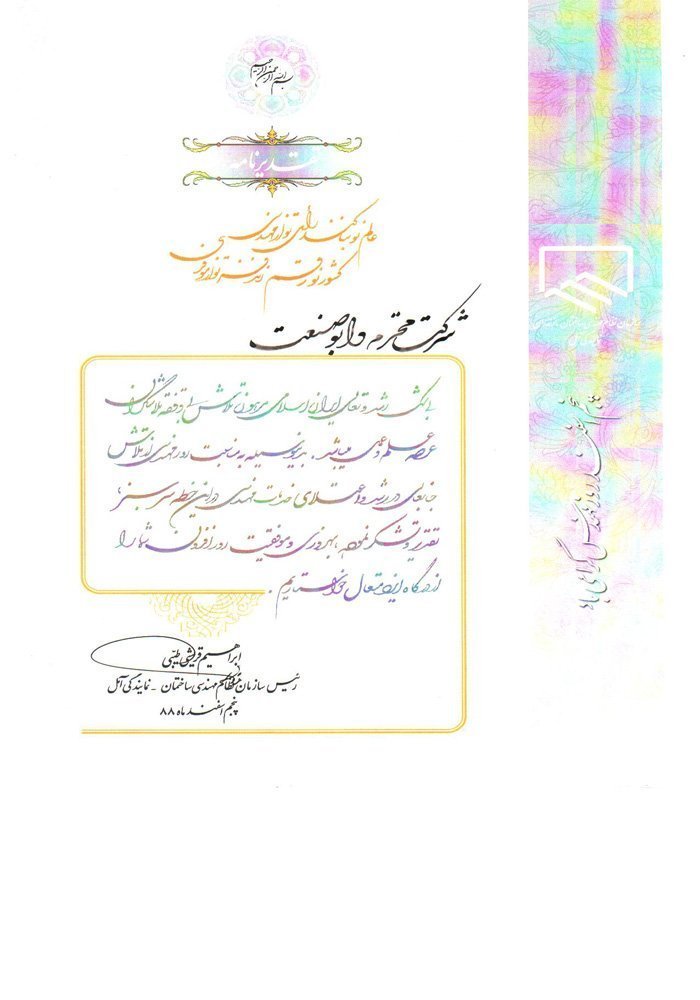 بسم الله الرحمن الرحیم
تقدیرنامه
عالم نو بنا کند رأی تو از مهندسی
کشور نو رقم زند فر تو از موفری
شرکت محترم داتو صنعت
بالندگی رشد و تعالی ایران اسلامی مرهون تلاش بی وقفه تلاشگران
عرصه علم و عمل میباشد . بدینوسیله به مناسبت روز مهندسی از تلاش
جنابعالی در رشد و اعتلای خدمات مهندسی در این خطه سرسبز،
تقدیر و تشکر نموده ، بهروزی و موفقیت روزافزون شما را
از درگاه ایزد متعال خواستاریم .
ابراهیم قریشی طیبی
رئیس سازمان نظام مهندسی ساختمان - نمایندگی آمل
پنجم اسفند ماه ۸۸
پنجم اسفند ، روز مهندس گرامی باد